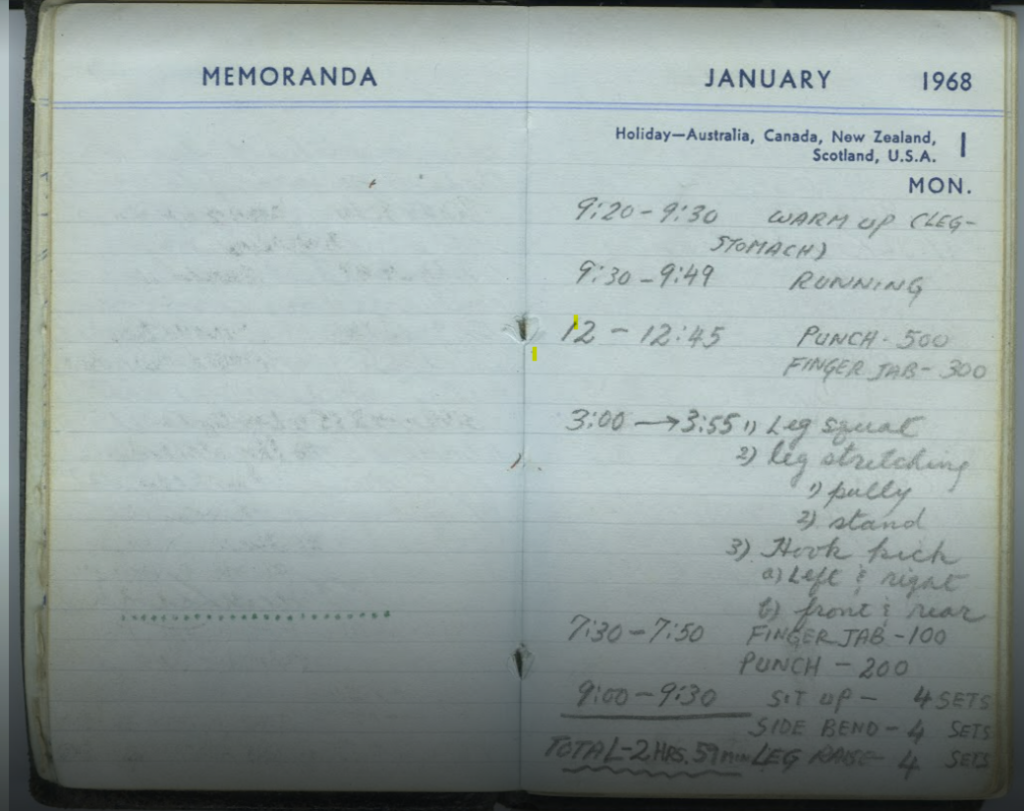 MEMORANDA
JANUARY 1968
Holiday—Australia, Canada, New Zealand,
Scotland, U.S.A.
1
MON.
9:20 - 9:30 WARM UP (LEG-
STOMACH)
9:30 - 9:49 RUNNING
12 - 12:45 PUNCH - 500
FINGER JAB - 300
3:00 → 3:55 1) Leg squat
2) leg stretching
1) pully
2) stand
3) Hook kick
a) Left & right
b) front & rear
7:30 - 7:50 FINGER JAB - 100
PUNCH - 200
9:00 - 9:30 SIT UP - 4 SETS
SIDE BEND - 4 SETS
TOTAL - 2 HRS. 59 min LEG RAISE - 4 SETS